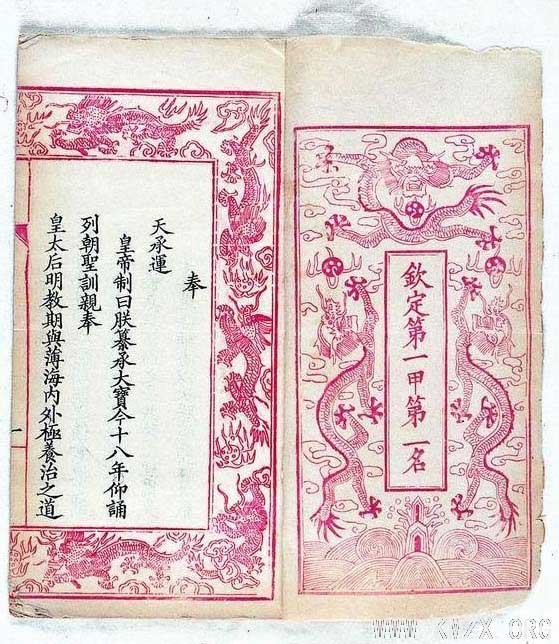 欽定第一甲第一名
奉
天承運
皇帝制曰朕纂承大寶今十八年仰誦
列朝聖訓親奉
皇太后明教期與薄海內外極養治之道